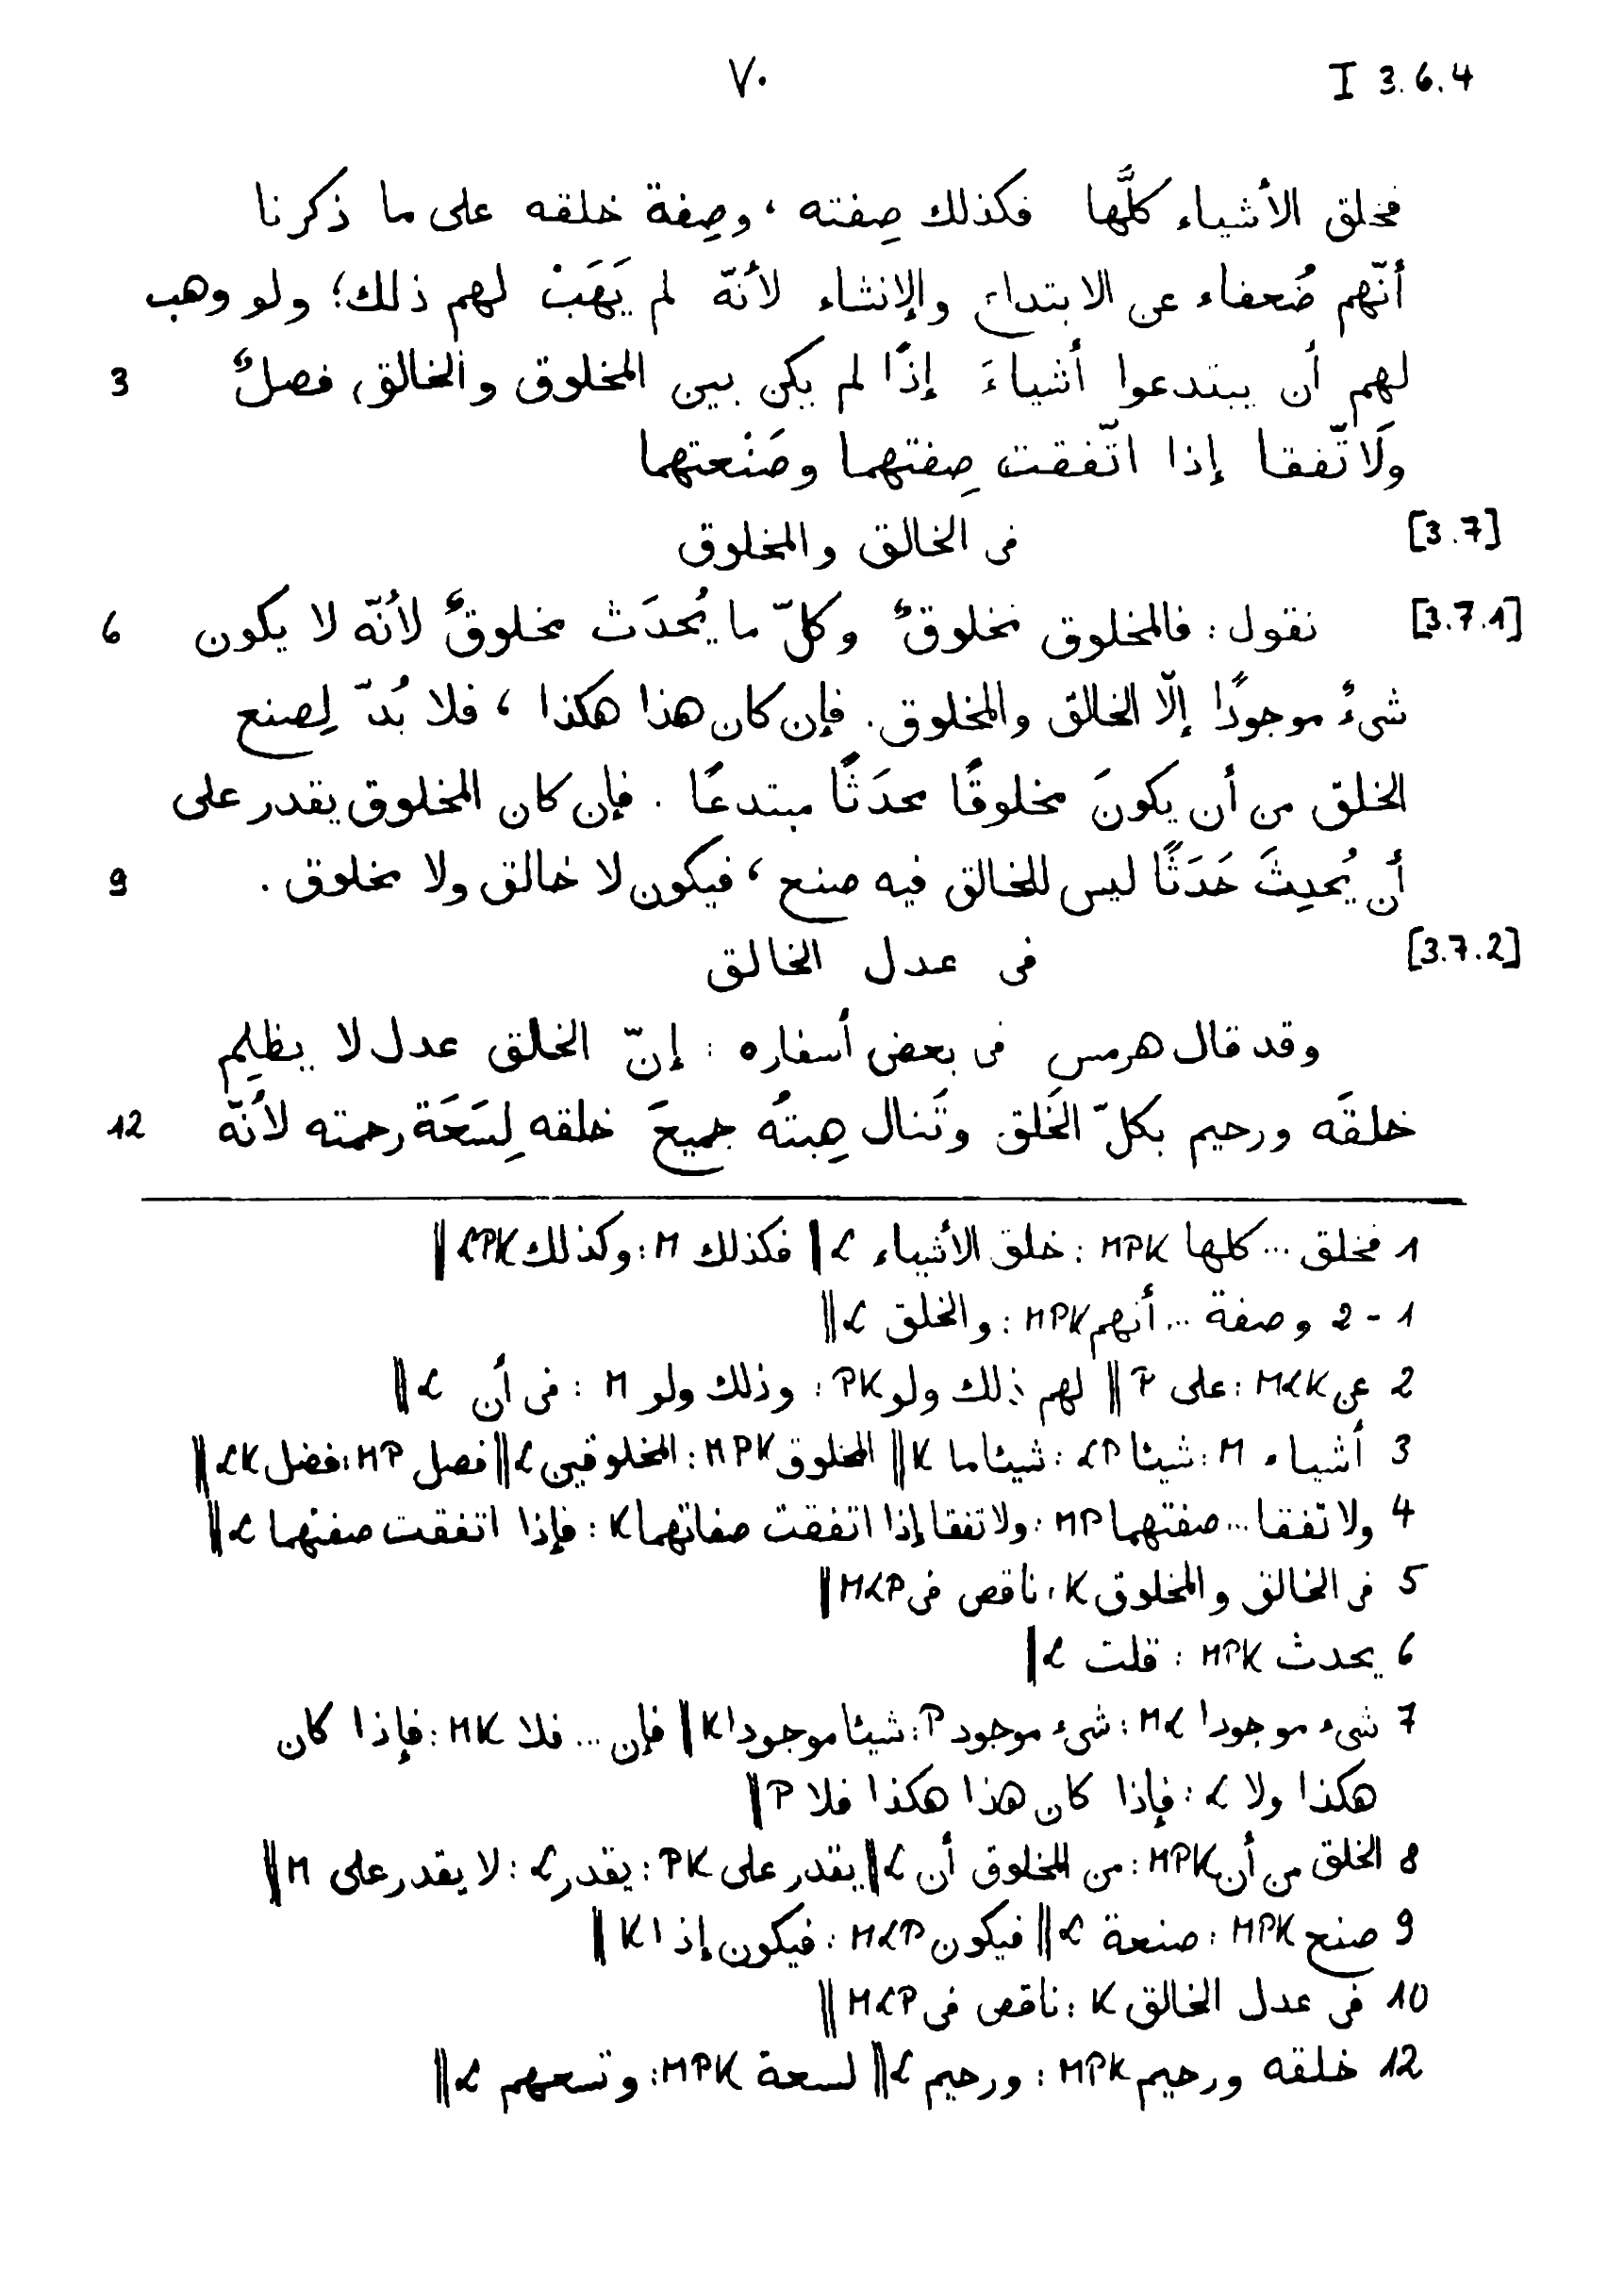 I 3.6.4 ٧٠
فخلق الأشياء كلَّها فكذلك صِفته ، وصِفة خلقه على ما ذكرنا
أنّهم ضُعفاء عن الابتداع والإنشاء لأنّه لم يَهَبْ لهم ذلك؛ ولو وهب
لهم أن يبتدعوا أشياءَ إذًا لم يكن بين المخلوق والخالق فصلٌ 3
ولَاتّفقا إذا اتّفقت صِفتهما وصَنْعتهما
[3.7] فى الخالق والمخلوق
[3.7.1] نقول : فالمخلوق مخلوقٌ وكلّ ما يُحدَث مخلوقٌ لأنّه لا يكون 6
شىءٌ موجودًا إلّا الخالق والمخلوق. فإن كان هذا هكذا ، فلا بُدّ لِصنع
الخلق من أن يكونَ مخلوقًا محدَثًا مبتدعًا . فإن كان المخلوق يقدر على
أن يُحدِثَ حَدَثًا ليس للخالق فيه صنع ، فيكون لا خالق ولا مخلوق . 9
[3.7.2] فى عدل الخالق
وقد قال هرمس فى بعض أسفاره : إنّ الخالق عدل لا يظلِم
خلقَه ورحيم بكلّ الخَلق وتَنال هِبتُه جميعَ خلقه لِسَعَة رحمته لأنّه 12
1 فخلق ... كلها MPK : خلق الأشياء L || فكذلك M : وكذلك LPK ||
1 - 2 وصفة ... أنهم MPK : والخلق L ||
2 عن MLK : على P || لهم ذلك ولو PK : وذلك ولو M : فى أن L ||
3 أشياء M : شيئا LP : شيئا ما K || المخلوق MPK : المخلوقين L || فصل MP : فضل LK ||
4 ولاتّفقا ... صفتهما MP : ولاتفقا إذا اتفقت صفاتهما K : فإذا اتفقت صفتهما L ||
5 فى الخالق والمخلوق K : ناقص فى MLP ||
6 يحدث MPK : قلت L ||
7 شىء موجودا ML : شىء موجود P : شيئا موجودا K || فإن ... فلا MK : فإذا كان
هكذا ولا L : فإذا كان هذا هكذا فلا P ||
8 الخلق من أن MPK : من المخلوق أن L || يقدر على PK : يقدر L : لا يقدر على M ||
9 صنع MPK : صنعة L || فيكون MLP : فيكون إذا K ||
10 فى عدل الخالق K : ناقص فى MLP ||
12 خلقه ورحيم MPK : ورحيم L || لسعة MPK : وتسعهم L ||